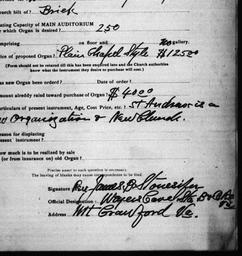 urch built of? Brick
ating Capacity of MAIN AUDITORIUM
which Organ is desired? 250
mprising on floor and no gallery.
ice of proposed Organ? Plain Chapel Style $1250.00
(Form should not be returned till this has been enquired into and the Church authorities
know what the instrument they desire to purchase will cost.)
as new Organ been ordered? Date of order?
mount already raised toward purchase of Organ? $400.00
articulars of present instrument, Age, Cost Price, etc. St Andrews is a
w Organization & New Church.
eason for displacing
present instrument?
ow much is to be realized by sale
(or from insurance on) old Organ?
No question is to be passed as unnecessary.
The leaving of blanks may cause correspondence to be filed.
Signature Rev James B Stonesifer
Official Designation
Address Mt Crawford Va.